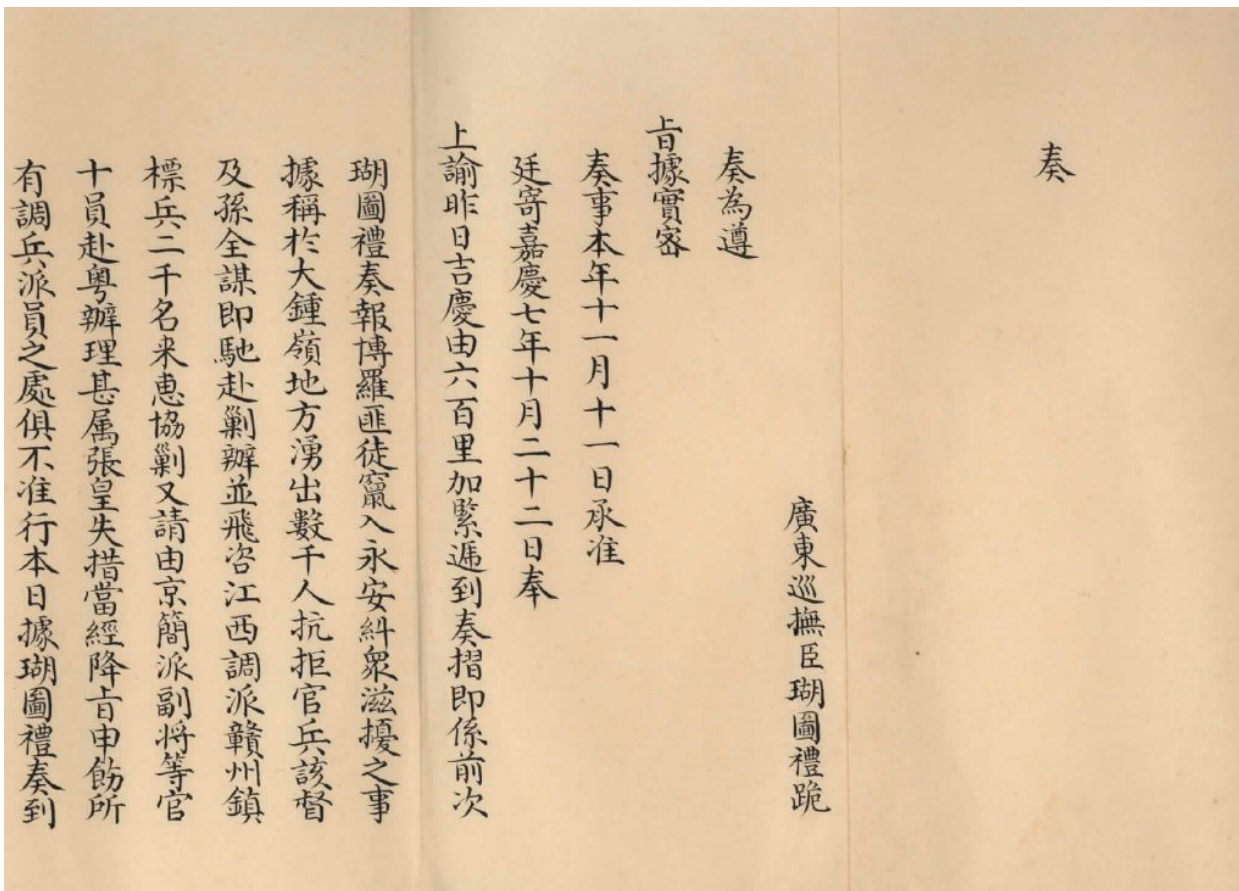 奏
廣東巡撫臣瑚圖禮跪
奏為遵
旨據實密
奏事本年十一月十一日承准
廷寄嘉慶七年十月二十二日奉
上諭昨日吉慶由六百里加緊遞到奏摺即係前次
瑚圖禮奏報博羅匪徒竄入永安糾衆滋擾之事
據稱於大鍾嶺地方湧出數千人抗拒官兵該督
及孫全謀即馳赴剿辦並飛咨江西調派贛州鎮
標兵二千名来惠協剿又請由京簡派副將等官
十員赴粵辦理甚属張皇失措當經降旨申飭所
有調兵派員之處俱不准行本日據瑚圖禮奏到